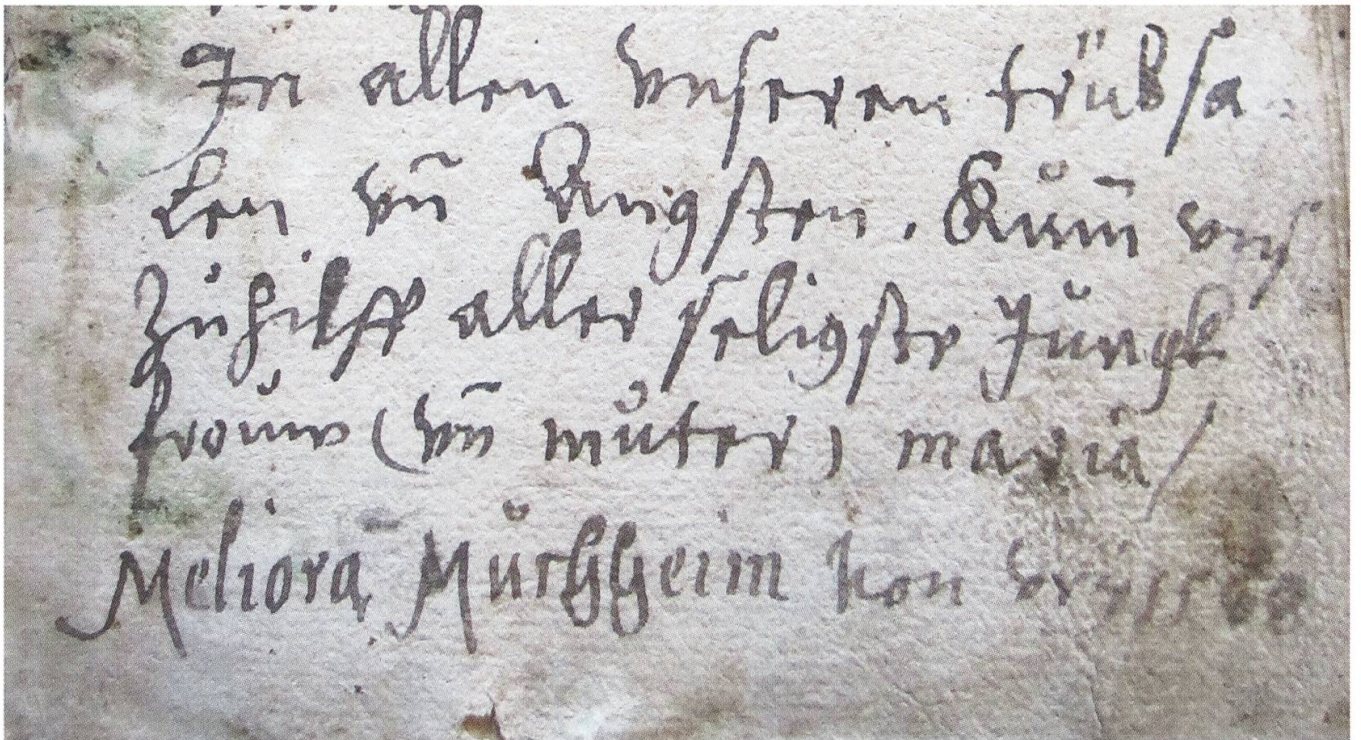 In allen vnseren trübsa
len vn̄ Angsten. Kům̄ vns
Zůhilff aller seligste Jungk
frouw (vn̄ můter) maria /
Meliora Můchheim von